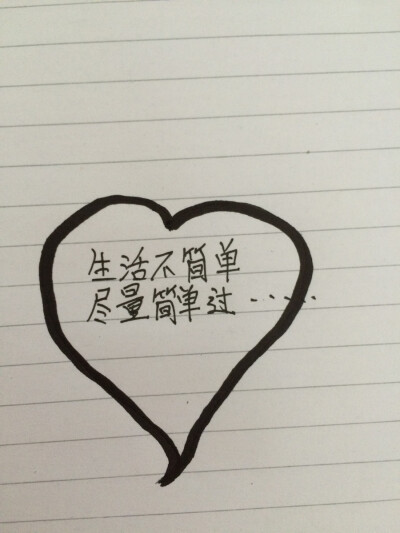 生活不简单
尽量简单过······